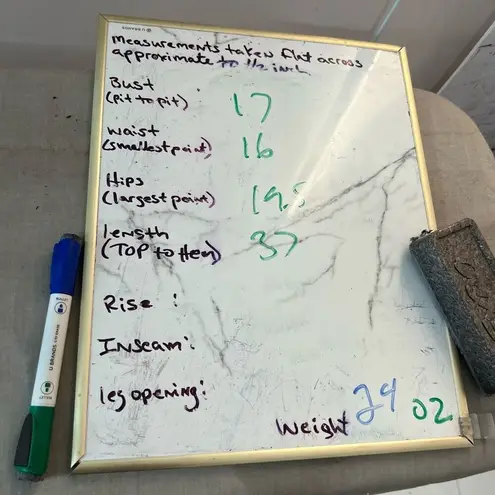 measurements taken flat across
approximate to 1/2 inch
Bust
(pit to pit) 17
waist
(smallest point) 16
Hips
(largest point) 19.5
length
(TOP to Hem) 37
Rise :
Inseam:
leg opening:
Weight 24 02
U BRANDS